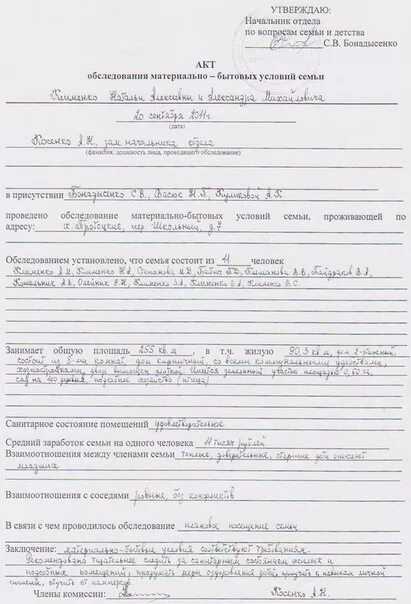 УТВЕРЖДАЮ:
Начальник отдела
по вопросам семьи и детства
С.В. Бонадысенко
АКТ
обследования материально – бытовых условий семьи
Клименко Натальи Алексеевны и Александра Михайловича
20 сентября 2011г
(дата)
Косенко А.Н., зам начальника отдела
(фамилия, должность лица, проводящего обследование)
в присутствии Бонадысенко С.В., Васюк Н.Г., Куликовой А.К.
проведено обследование материально-бытовых условий семьи, проживающей по
адресу: пер. Школьный, д.7
Обследованием установлено, что семья состоит из 11 человек
Клименко А.М., Клименко Н.А., Степанова М.Д.
Олейник Е.Н., Клименко Клименко Клименко В.С.
Занимает общую площадь 255 кв м , в т.ч. жилую 90,3 кв м, дом 2-этажный,
состоит из 8-ми комнат, дом кирпичный, со всеми коммунальными удобствами,
двор выложен плиткой. Имеется земельный участок площадью 0,60 га,
сад на 400 подсобное хозяйство (птица)
Санитарное состояние помещений удовлетворительное
Средний заработок семьи на одного человека 11 тысяч рублей
Взаимоотношения между членами семьи теплые, доверительные, старшие дети опекают
младших
Взаимоотношения с соседями ровные, без конфликтов
В связи с чем проводилось обследование плановое посещение семьи
Заключение: материально-бытовые условия соответствуют требованиям.
Рекомендовано тщательнее следить за санитарным состоянием жилых и
подсобных помещений, продумать меры оздоровления детей, приучить к навыкам личной
гигиены, отучить от памперсов
Члены комиссии: Косенко А.Н.